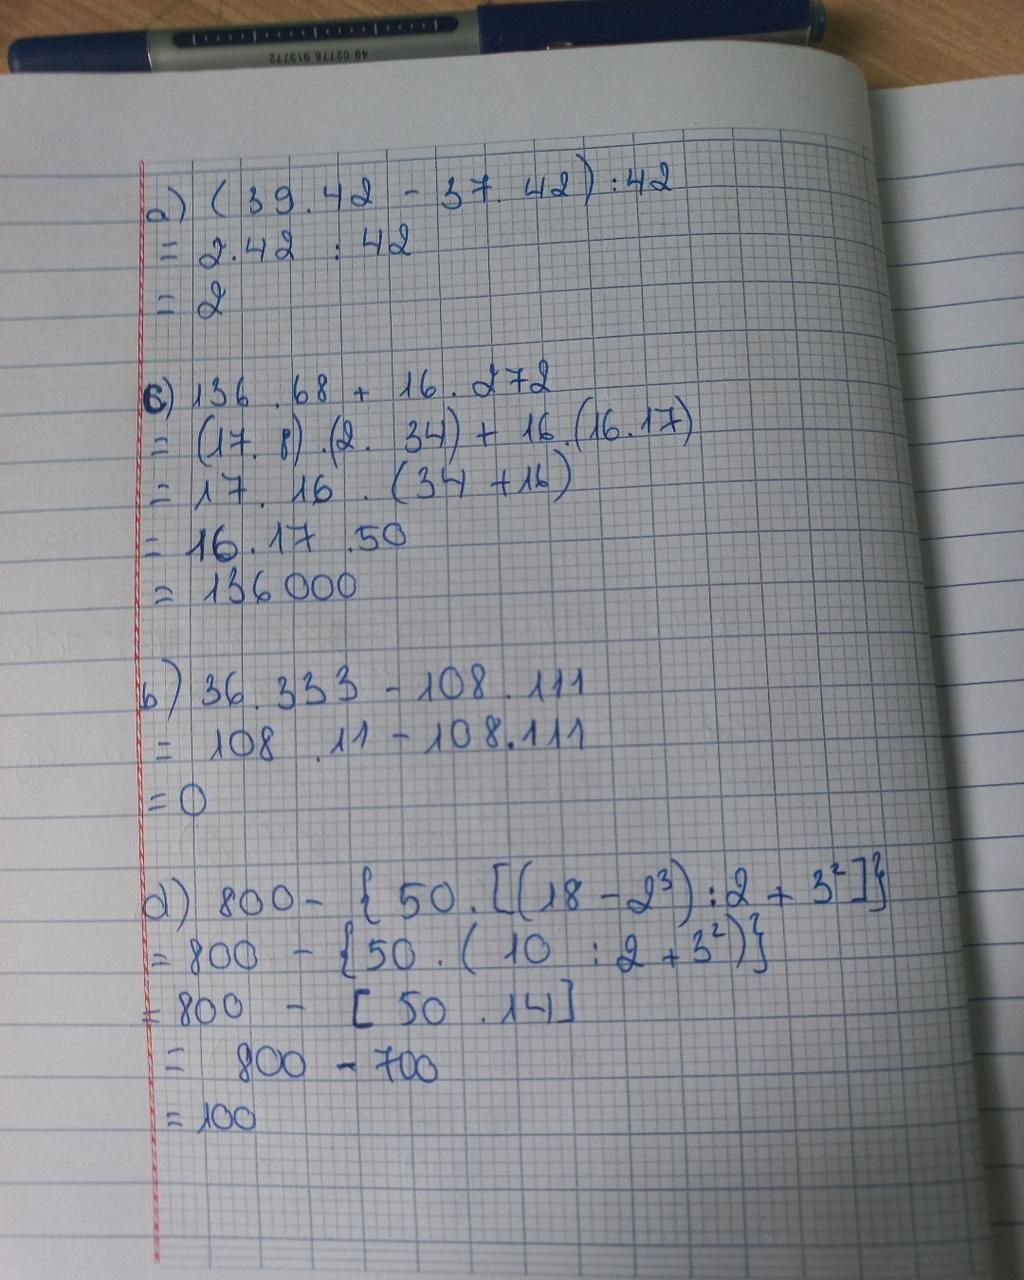 49 02778 913772
a) (39.42 - 37.42) : 42
= 2.42 : 42
= 2
c) 136.68 + 16.272
= (17.8).(2.34) + 16.(16.17)
= 17.16.(34+16)
= 16.17.50
= 136000
b) 36.333 - 108.111
= 108.11 - 108.111
= 0
d) 800 - {50.[(18 - 2³) : 2 + 3²]}
= 800 - {50.(10 : 2 + 3²)}
= 800 - [50.14]
= 800 - 700
= 100